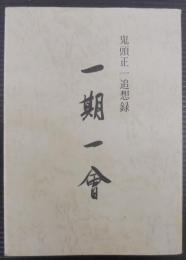 鬼頭正一追想録
一期一會